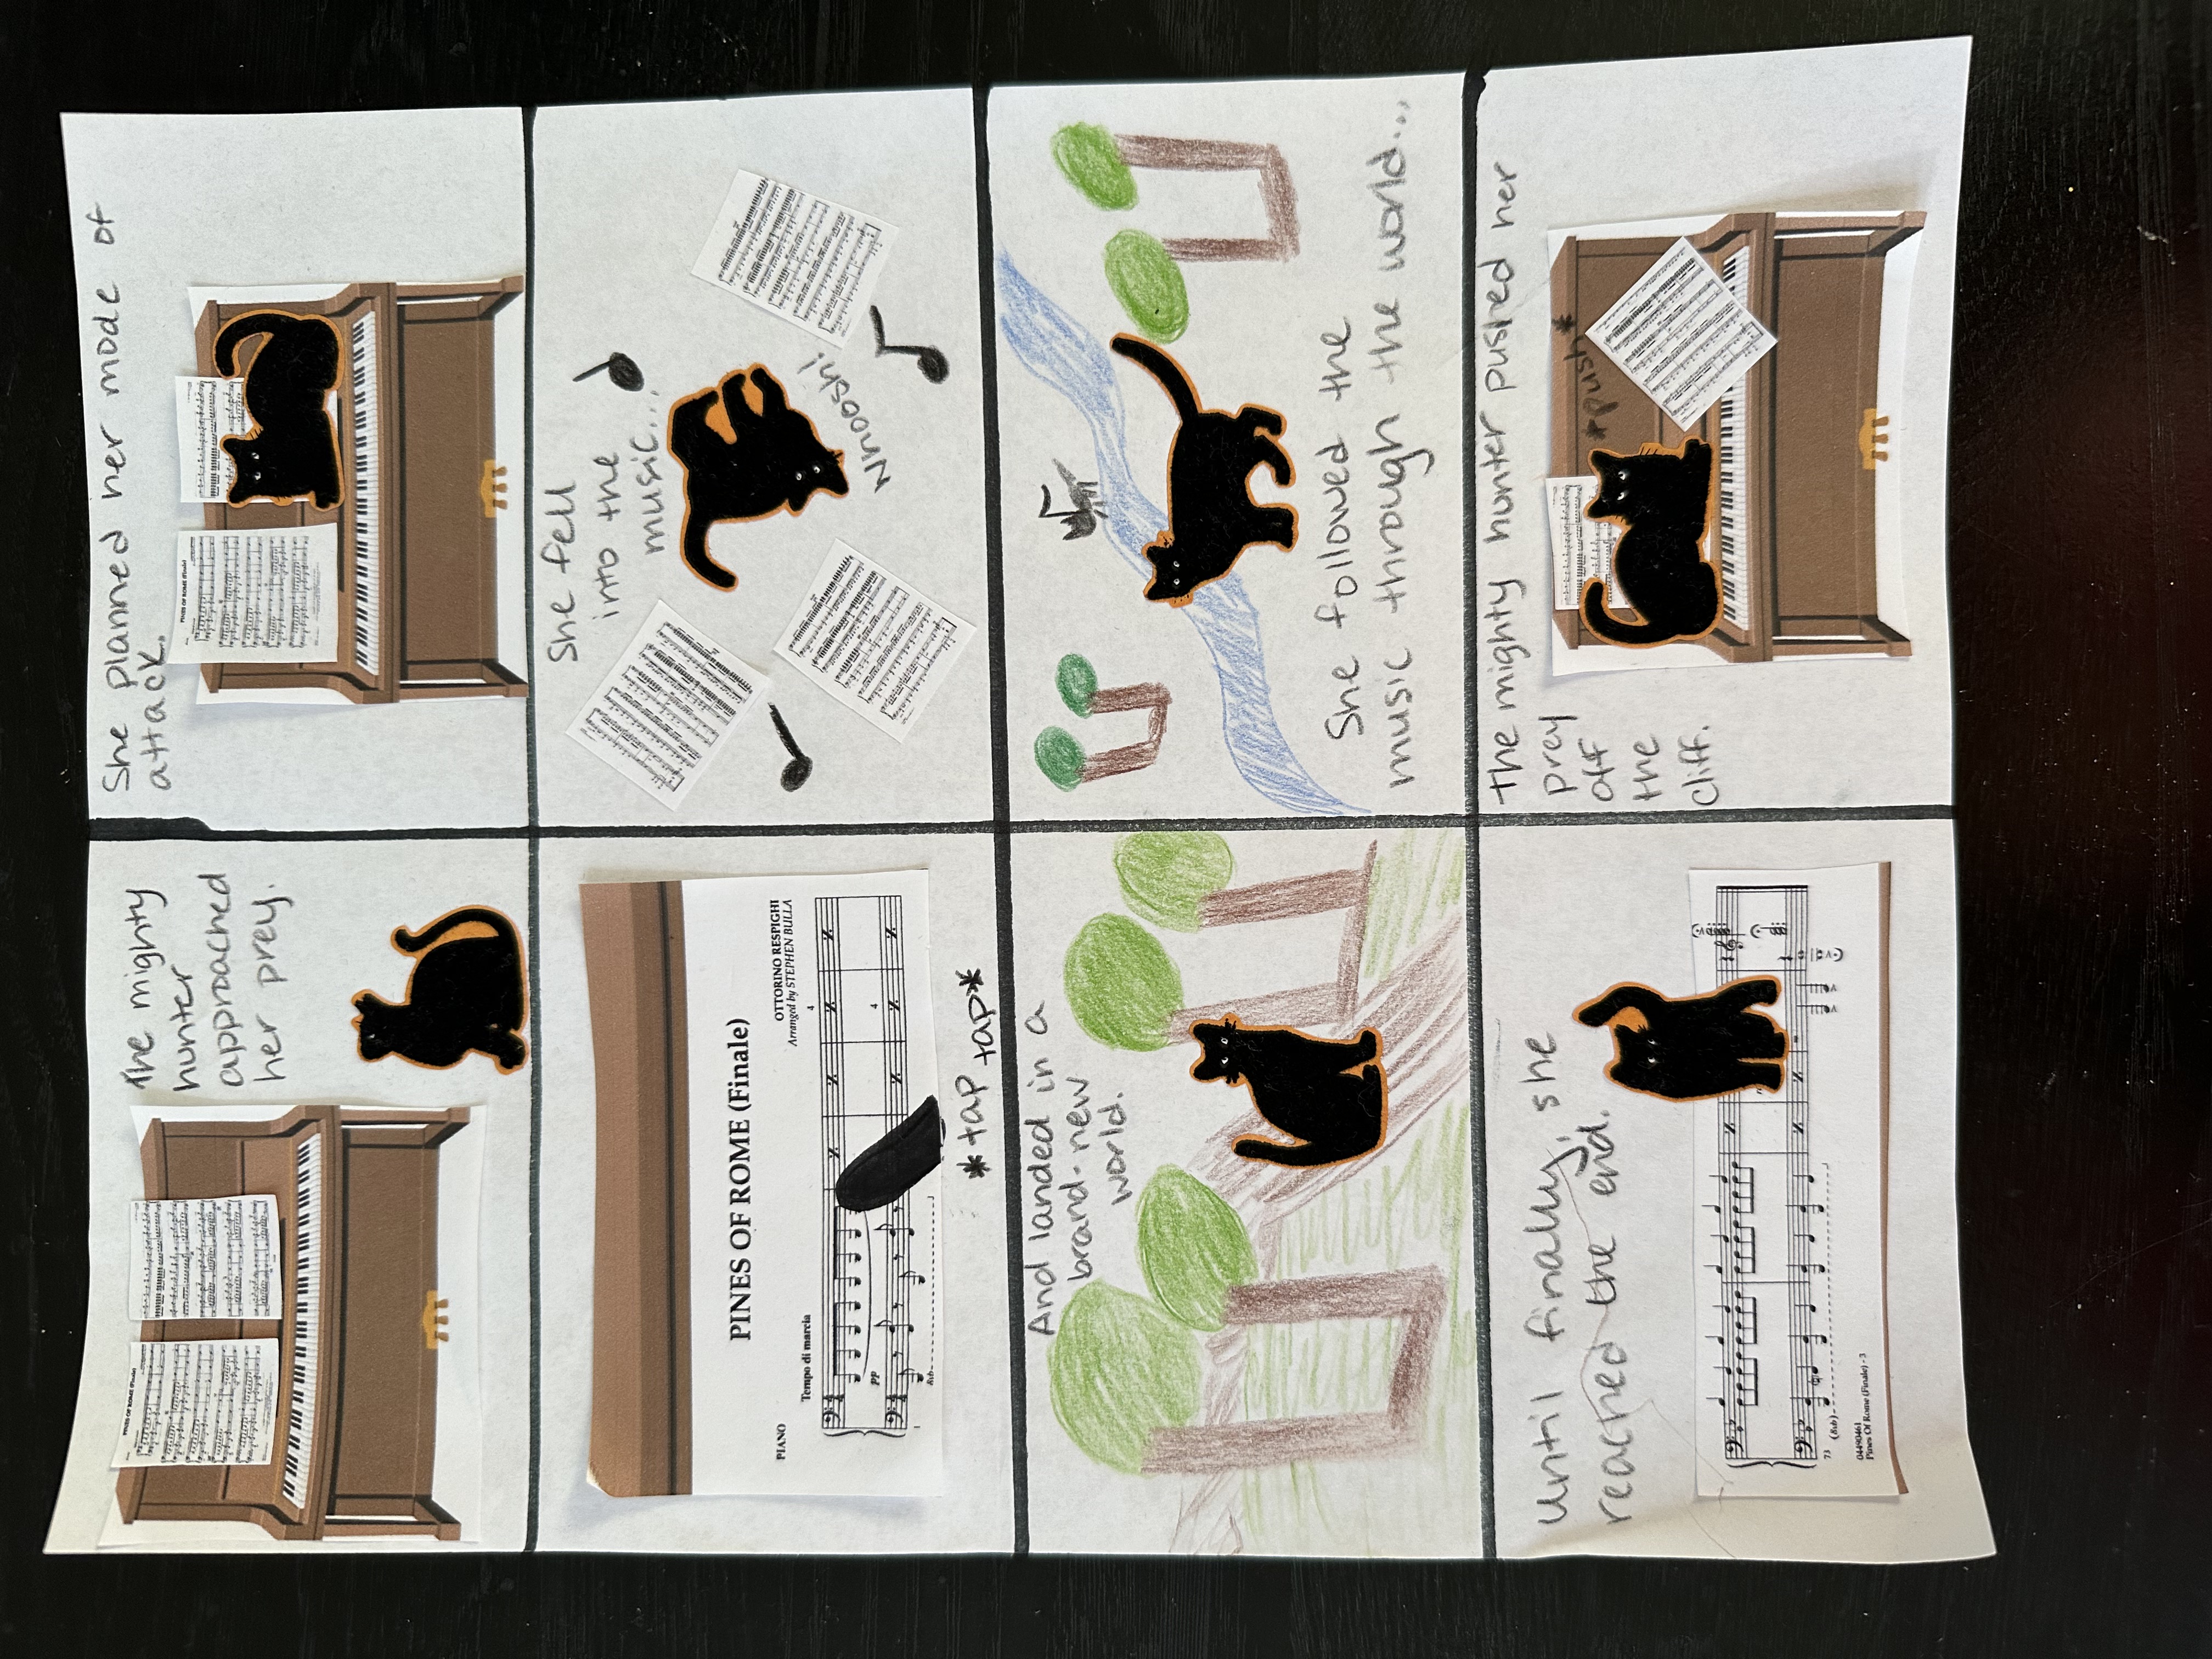 The mighty
hunter
approached
her prey.
PINES OF ROME (Finale)
She planned her mode of
attack.
PINES OF ROME (Finale)
PINES OF ROME (Finale)
PIANO
OTTORINO RESPIGHI
Arranged by STEPHEN BULLA
Tempo di marcia
4
pp
4
8vb
1
*tap tap*
She fell
into the
music...
Whoosh!
And landed in a
brand-new
world.
She followed the
music through the world...
Until finally, she
reached the end.
73
(8vb)
04490461
Pines Of Rome (Finale) - 3
The mighty hunter pushed her
prey
off
the
cliff.
*push*